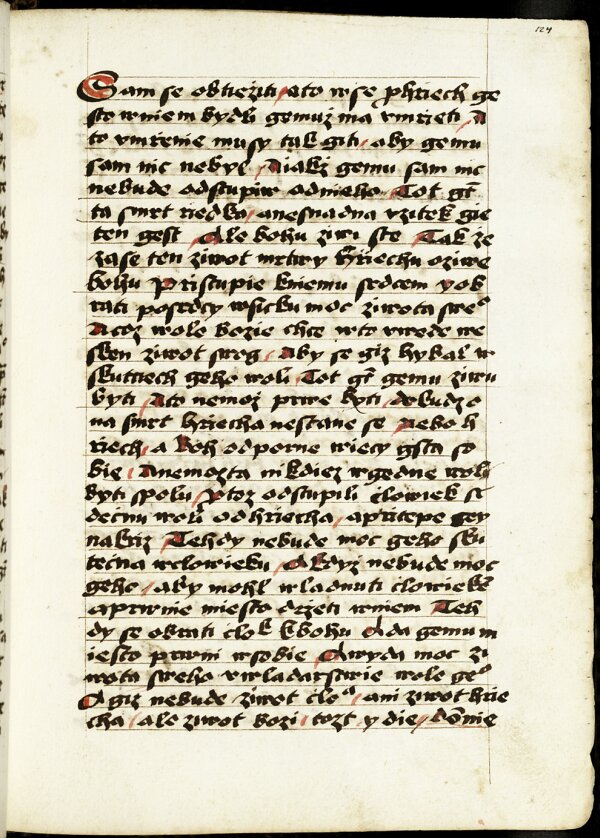 124
Sam se obtieziti / ato wse phriech ge
sto wniem bydli gemuz ma vmrieti / A
to vmrzenie musy tak giti / aby gemu
sam nic nebyl / Aiakz gemu sam nic
nebude odstupiw odnieho / Tot gt
ta smrt riedka / anesnadna vzitek gie
ten gest / Ale bohu ziwi ste / Tak ze
zase ten ziwot mrtwy hriechu oziwe
bohu Pristupie kniemu srdcem y ob
rati posrdcy wsicku moc ziwota swe
Acoz wole bozie chce wto vwede we
sken ziwot sweg / Aby se giz hybal w
skutciech geho woli / Tot gt gemu ziwu
byti / Ato nemoz prwe byti / dokudz o
na smrt hriecha nestane se / Nebo h
riech / a boh odporne wiecy gsta so
bie / Anemozta nikdiez wgedne woli
byti spolu / ytoz odstupili clowiek sr
decnu woli od hriecha / apritepe gey
nakriz / Tehdy nebude moc geho sku
tecna wclowieku / Akdyz nebude moc
geho / aby mohl wladnuti clowiekem
aprwnie miesto drzeti wniem Teh
dy se obrati clok kbohu / Ada gemu m
iesto prwni wsobie / Awyda moc zi
wota sweho vwladarstwie wole ge
A giz nebude ziwot clo / ani ziwot hrie
cha / ale ziwot bozi / tozt y die / Domnie